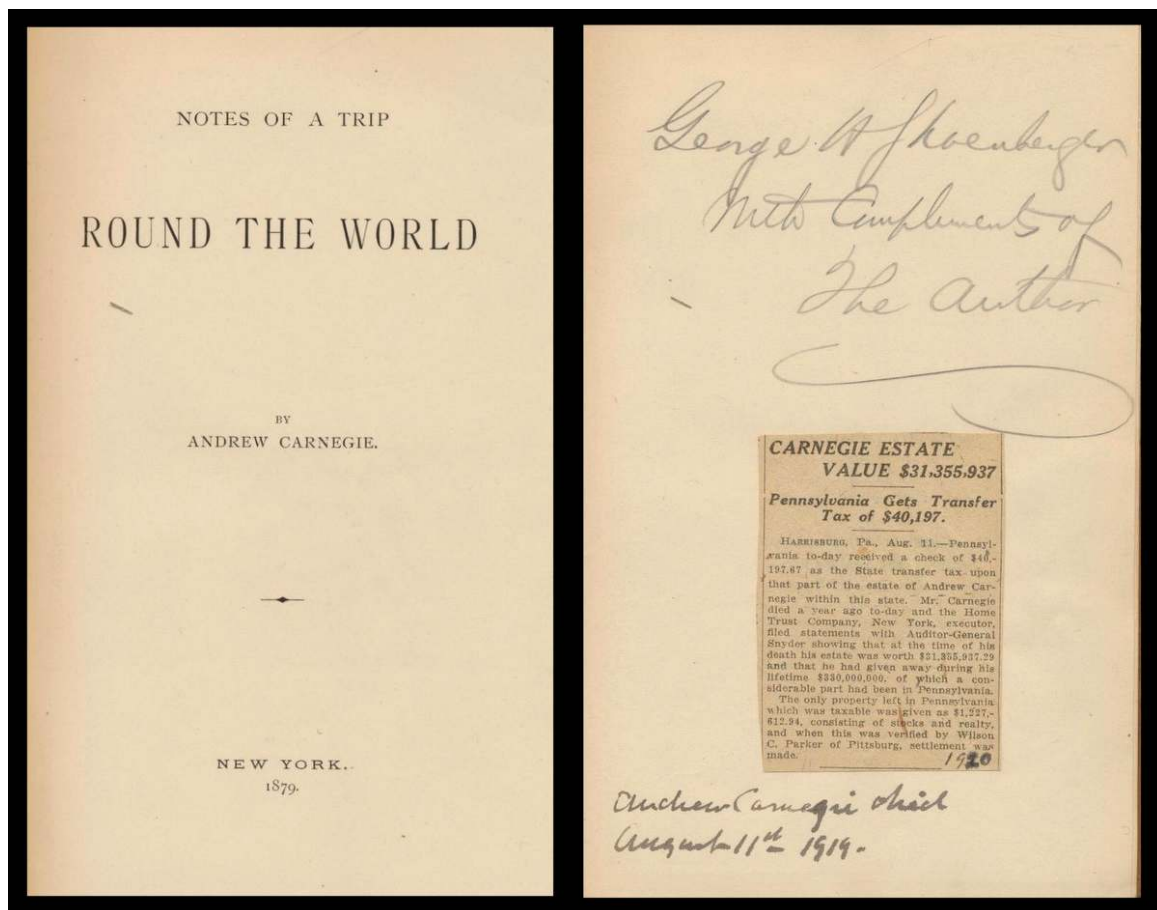 NOTES OF A TRIP
ROUND THE WORLD
BY
ANDREW CARNEGIE.
NEW YORK.
1879.
George H Shoenberger
With Compliments of
The Author
CARNEGIE ESTATE
VALUE $31,355,937
Pennsylvania Gets Transfer
Tax of $40,197.
HARRISBURG, Pa., Aug. 11.—Pennsyl-
vania to-day received a check of $40,-
197.67 as the State transfer tax upon
that part of the estate of Andrew Car-
negie within this state. Mr. Carnegie
died a year ago to-day and the Home
Trust Company, New York, executor,
filed statements with Auditor-General
Snyder showing that at the time of his
death his estate was worth $31,355,937.29
and that he had given away during his
lifetime $330,000,000, of which a con-
siderable part had been in Pennsylvania.
The only property left in Pennsylvania
which was taxable was given as $1,227,-
612.94, consisting of stocks and realty,
and when this was verified by Wilson
C. Parker of Pittsburg, settlement was
made.
1920
Andrew Carnegie died
August 11th 1919.